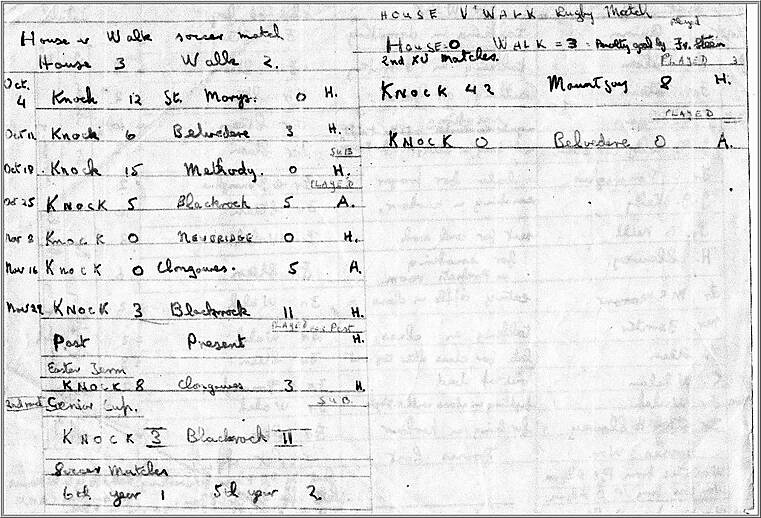 House v Walk soccer match
House 3 Walk 2.
Oct. 4 Knock 12 St. Marys. 0 H.
Oct 11 Knock 6 Belvedere 3 H.
SUB
Oct 18 Knock 15 Methody. 0 H.
PLAYED
Oct 25 KNOCK 5 Blackrock 5 A.
Nov 8 Knock 0 NEWBRIDGE 0 H.
Nov 16 Knock 0 Clongowes. 5 A.
Nov 22 KNOCK 3 Blackrock 11 H.
PLAYED for Past
Past Present H.
Easter Term
KNOCK 8 Clongowes 3 H.
SUB.
2nd rnd Senior Cup.
KNOCK 3 Blackrock 11
Soccer Matches
6th year 1 5th year 2
HOUSE V WALK Rugby Match
played
HOUSE=0 WALK=3 - Penalty goal by Fr.
2nd XV matches.
PLAYED 3
KNOCK 42 Mountjoy 8 H.
PLAYED
KNOCK 0 Belvedere 0 A.